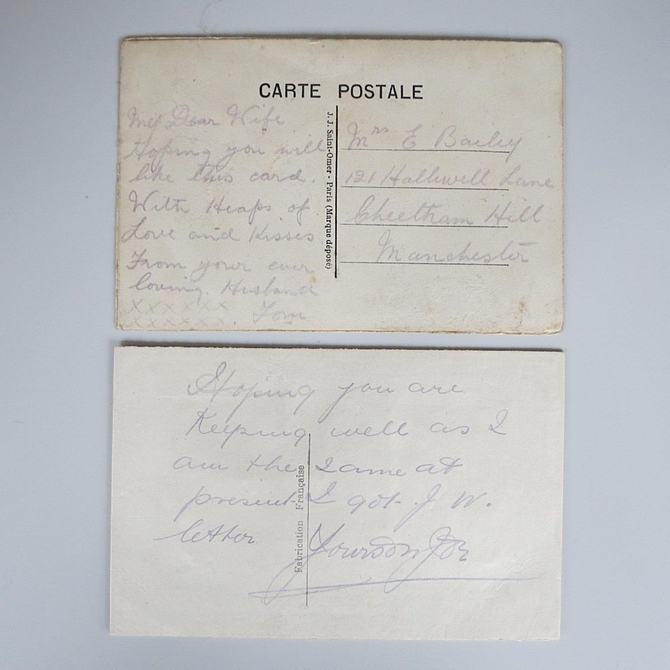 CARTE POSTALE
My Dear Wife
Hoping you will
like this card.
With Heaps of
Love and Kisses
From your ever
loving Husband
xxxxxx. Tom
xxxxxx
J. J. Saint-Omer - Paris (Marque déposé)
Mrs E Bailey
121 Halliwell Lane
Cheetham Hill
Manchester
Hoping you are
Keeping well as I
am the same at
present I got J. W.
letter Yourson Joe
Fabrication Française